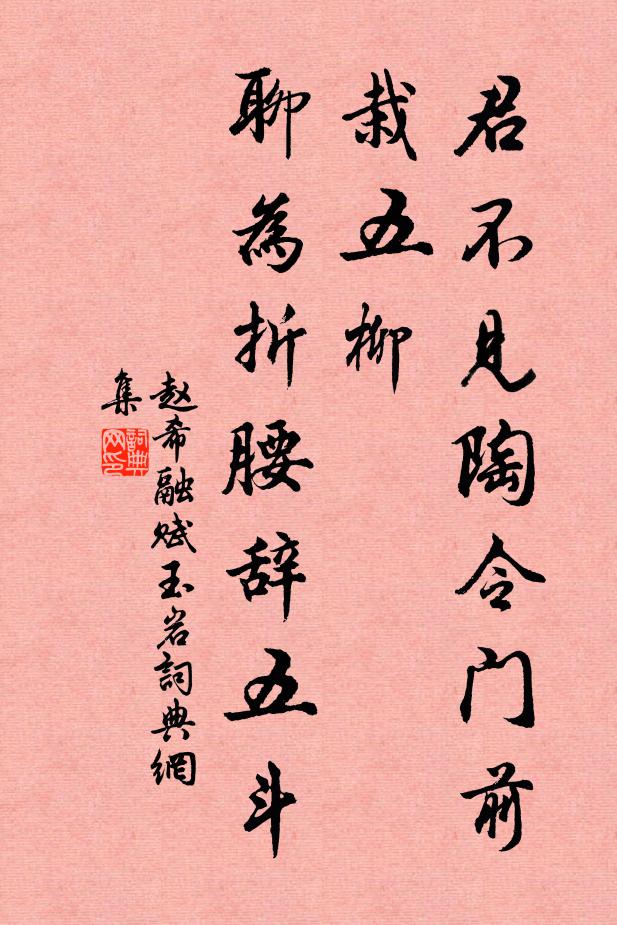 君不見陶令门前
栽五柳
聊為折腰辞五斗
赵希融赋玉岩詞典網
集
詞典
网印